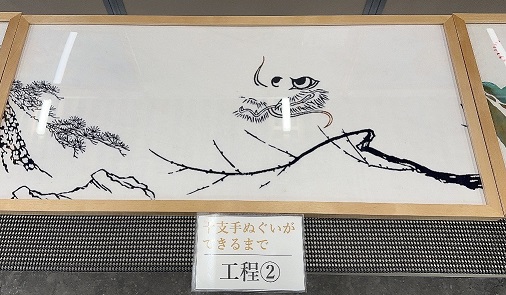 十支手ぬぐいが
できるまで
工程②